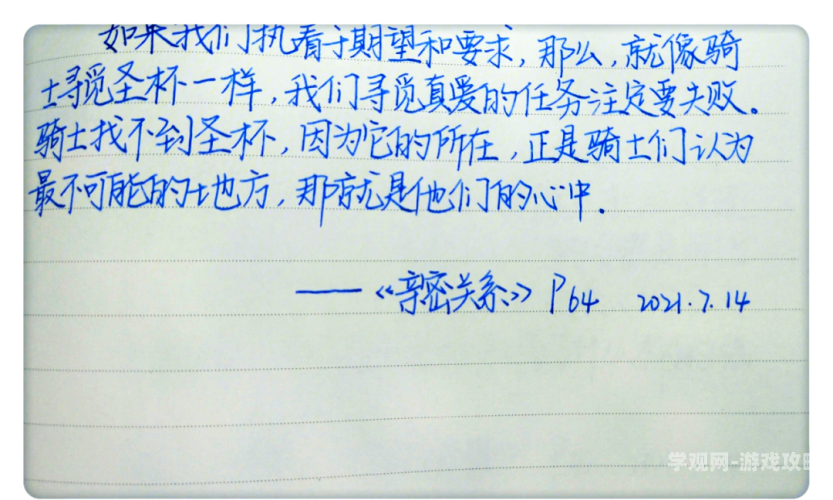 如果我们执着于期望和要求，那么，就像骑
士寻觅圣杯一样，我们寻觅真爱的任务注定要失败。
骑士找不到圣杯，因为它的所在，正是骑士们认为
最不可能的地方，那就是他们的心中．
——《亲密关系》P64 2021.7.14
学观网-游戏攻略